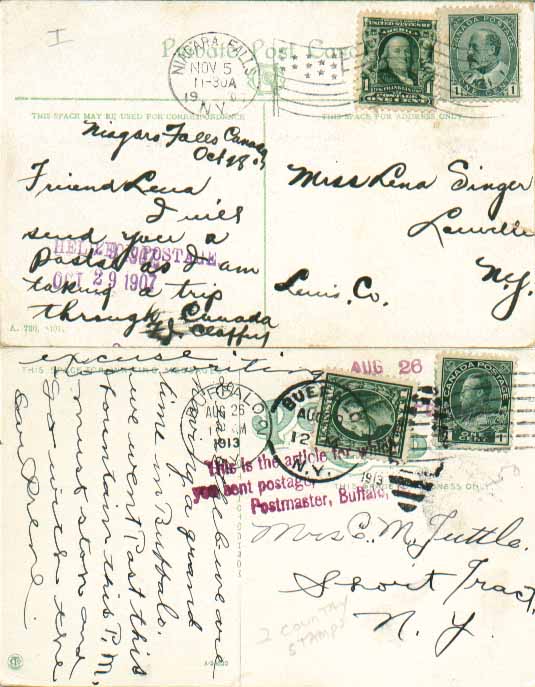 I
Private Post Card
NIAGARA FALLS
NOV 5
11-30A
19
N.Y.
UNITED STATES OF AMERICA
1
POSTAGE
ONE CENT
CANADA POSTAGE
1 1
THIS SPACE MAY BE USED FOR CORRESPONDENCE
THIS SPACE FOR ADDRESS ONLY
Niagara Falls Canada
Oct 28
Friend Lena
I will
send you a
postal as I am
taking a trip
through Canada
HELD FOR POSTAGE
OCT 29 1907
Miss Lena Singer
Lowville
Lewis. Co. N.Y.
excuse writing
AUG 26
BUFFALO
AUG 26
1913
BUFFALO
AUG
12 M
N.Y.
1913
CANADA POSTAGE
1 1
This is the article for
you sent postage.
Postmaster, Buffalo,
we are
having a grand
time in Buffalo.
we went Past this
fountain this P.M.
Mrs. C. M. Tuttle.
Short Tract
N. Y.
2 COUNTRY
STAMPS